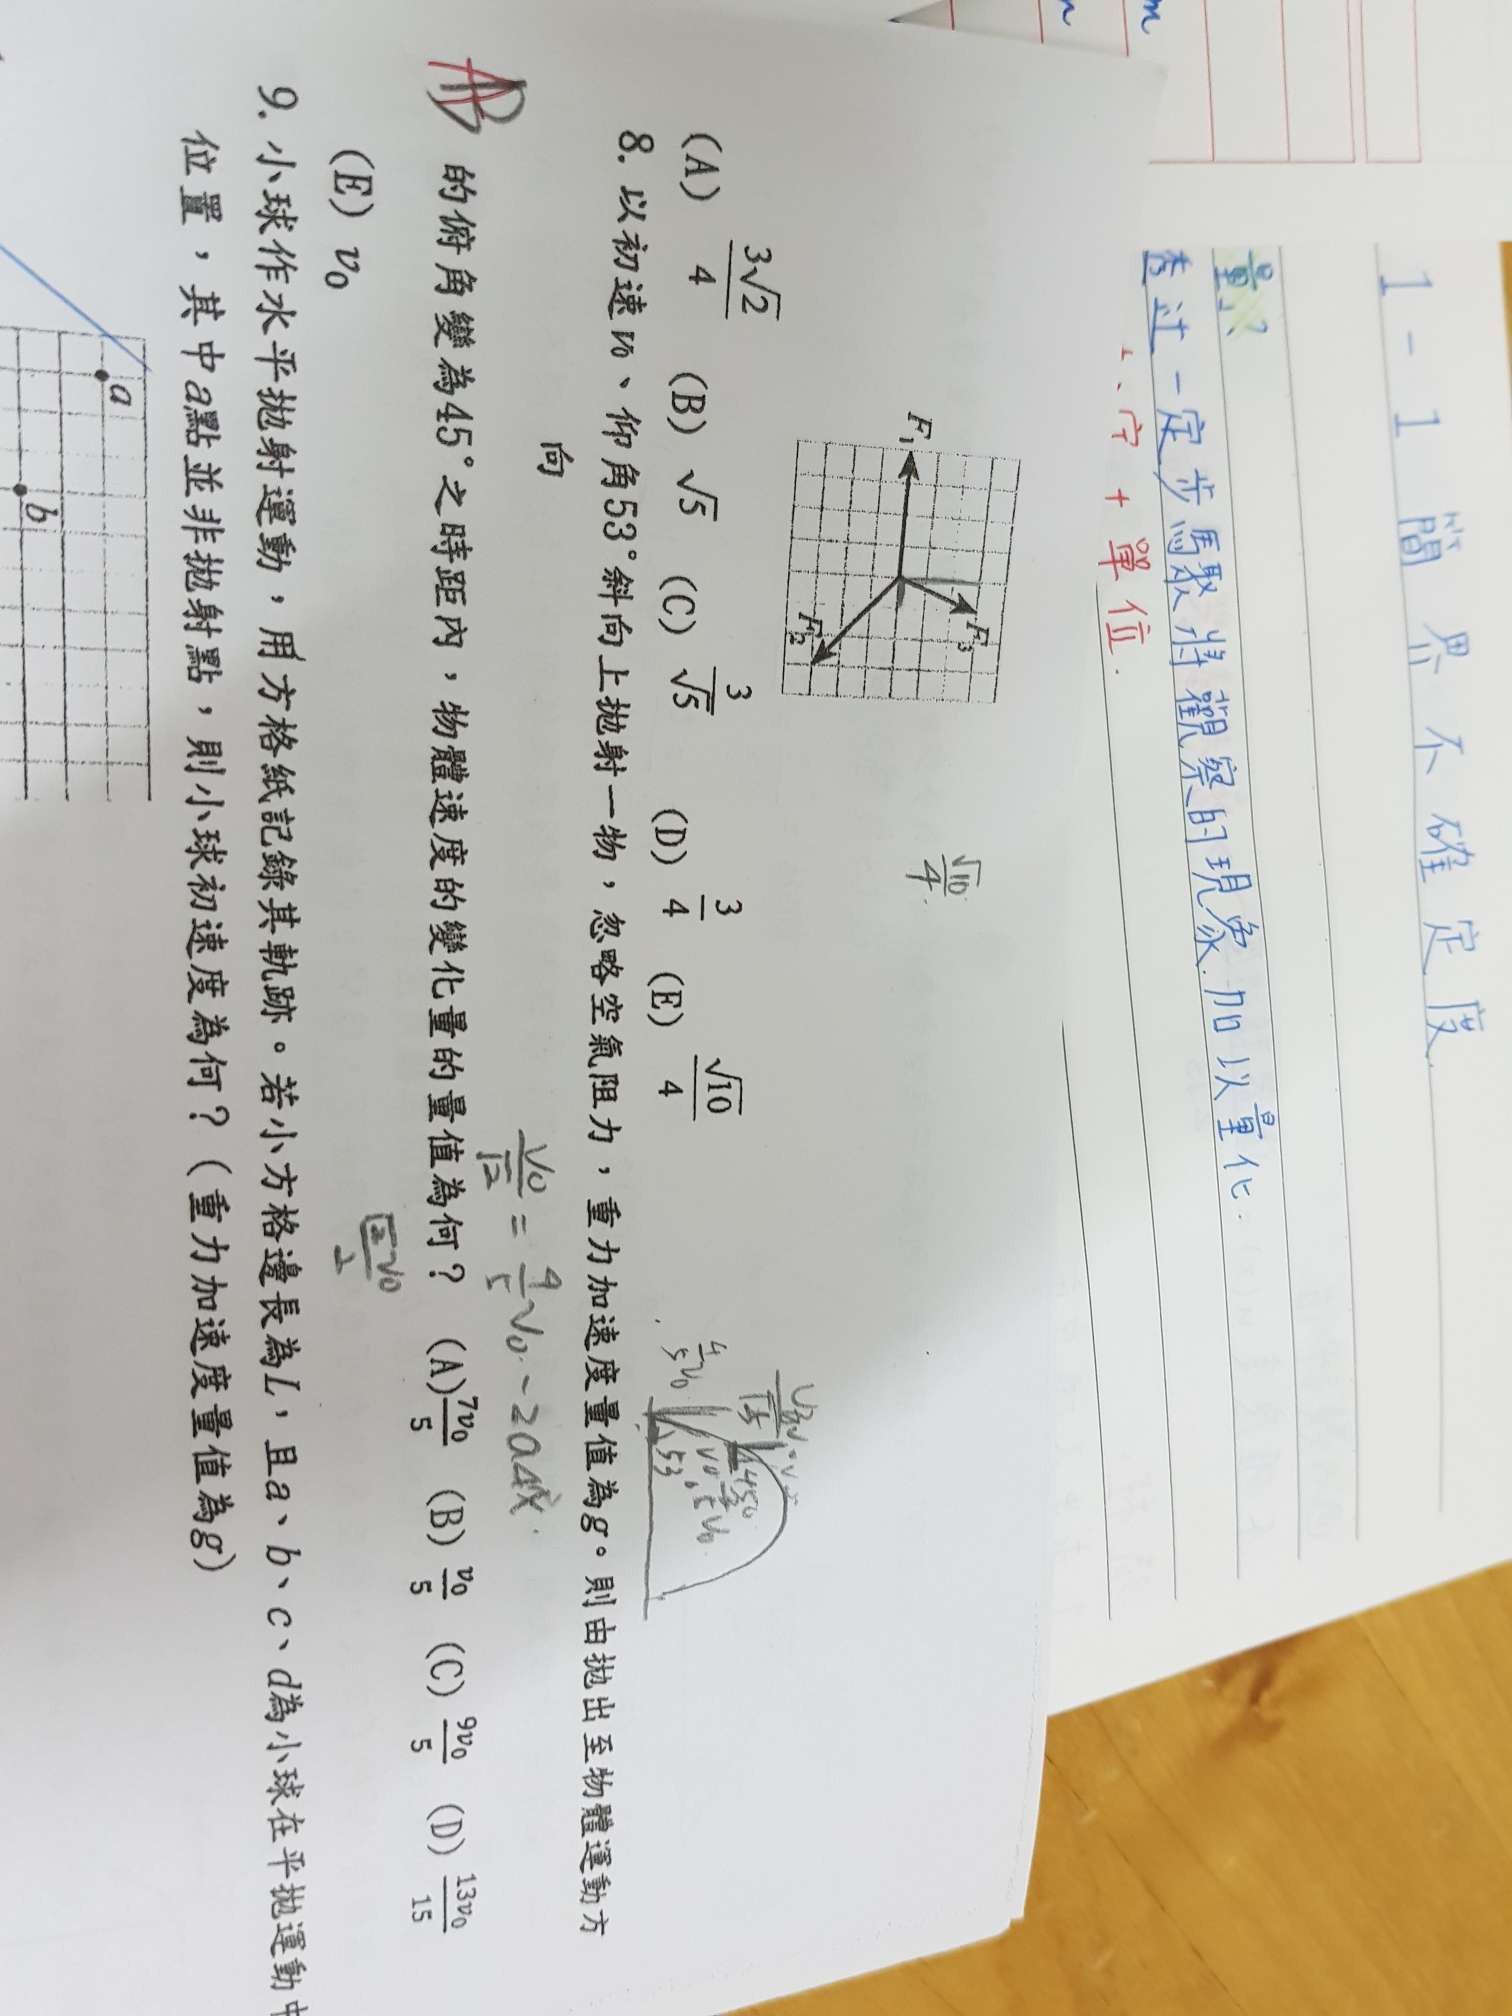 1-1 簡 界 不 確 定 度
量:
透过一定步驟取,將觀察的現象.加以量化.
字 + 單位.
F₁
F₂
F₃
√10/4
(A) 3√2/4 (B) √5 (C) 3/√5 (D) 3/4 (E) √10/4
8. 以初速v₀、仰角53°斜向上拋射一物,忽略空氣阻力,重力加速度量值為g。則由拋出至物體運動方
向
v₀/√2 = 4/5 v₀ - 2a△x.
4/5 v₀
53
45°
AB
的俯角變為45°之時距內,物體速度的變化量的量值為何? (A) 7v₀/5 (B) v₀/5 (C) 9v₀/5 (D) 13v₀/15
(E) v₀
√2v₀/2
9. 小球作水平拋射運動,用方格紙記錄其軌跡。若小方格邊長為L,且a、b、c、d為小球在平拋運動中
位置,其中a點並非拋射點,則小球初速度為何?(重力加速度量值為g)
a
b